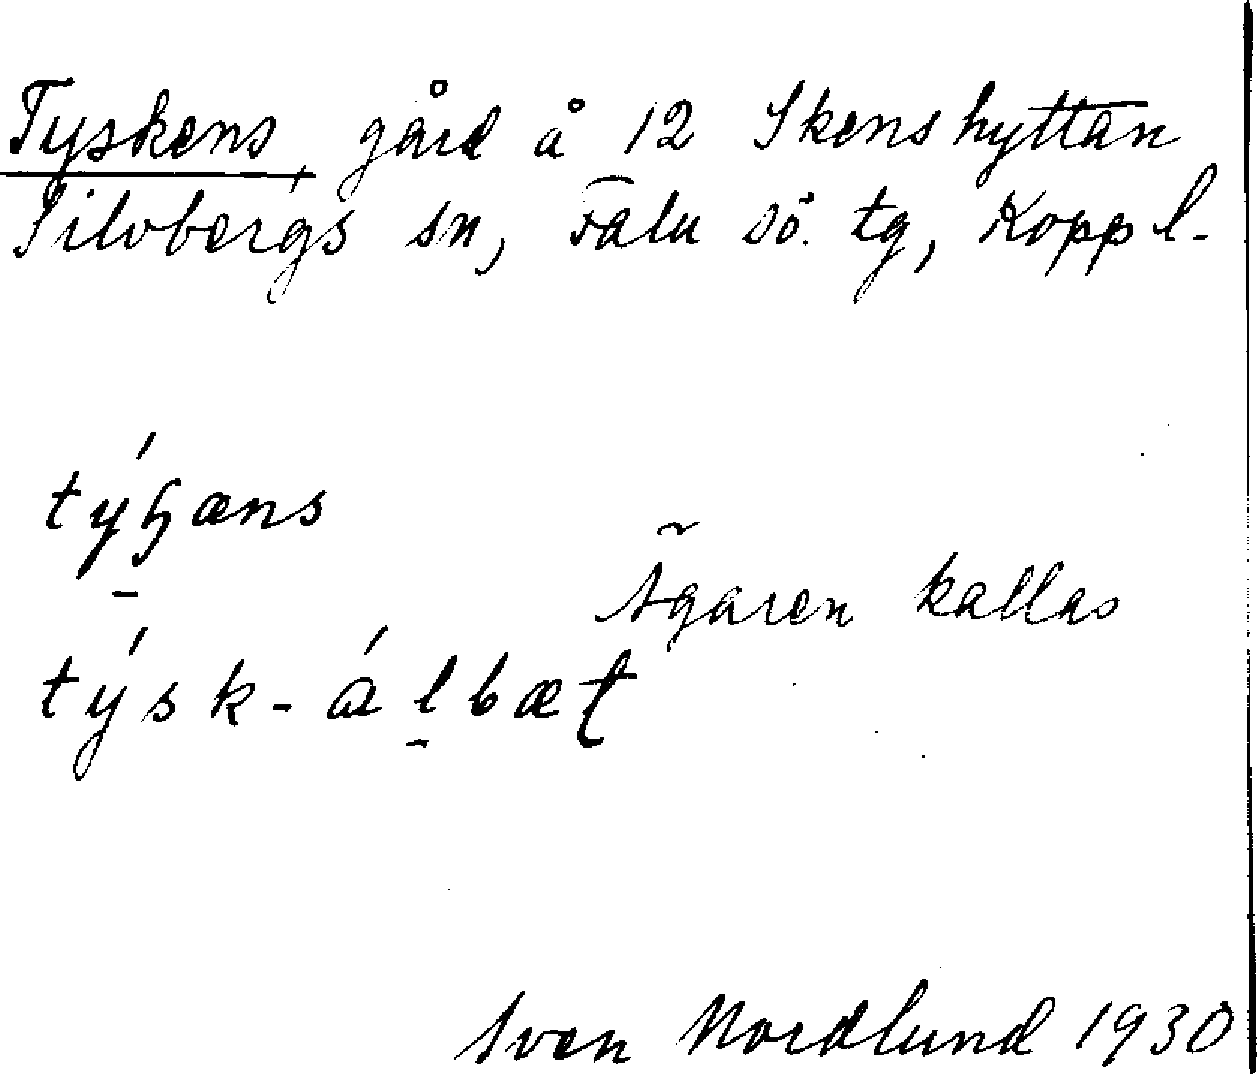 Tyskens, gård å 12 Skenshyttan
Silvbergs sn, Falu sö. tg, Koppl.
týɧæns
Ägaren kallas
týsk-álbæt
Sven Nordlund 1930